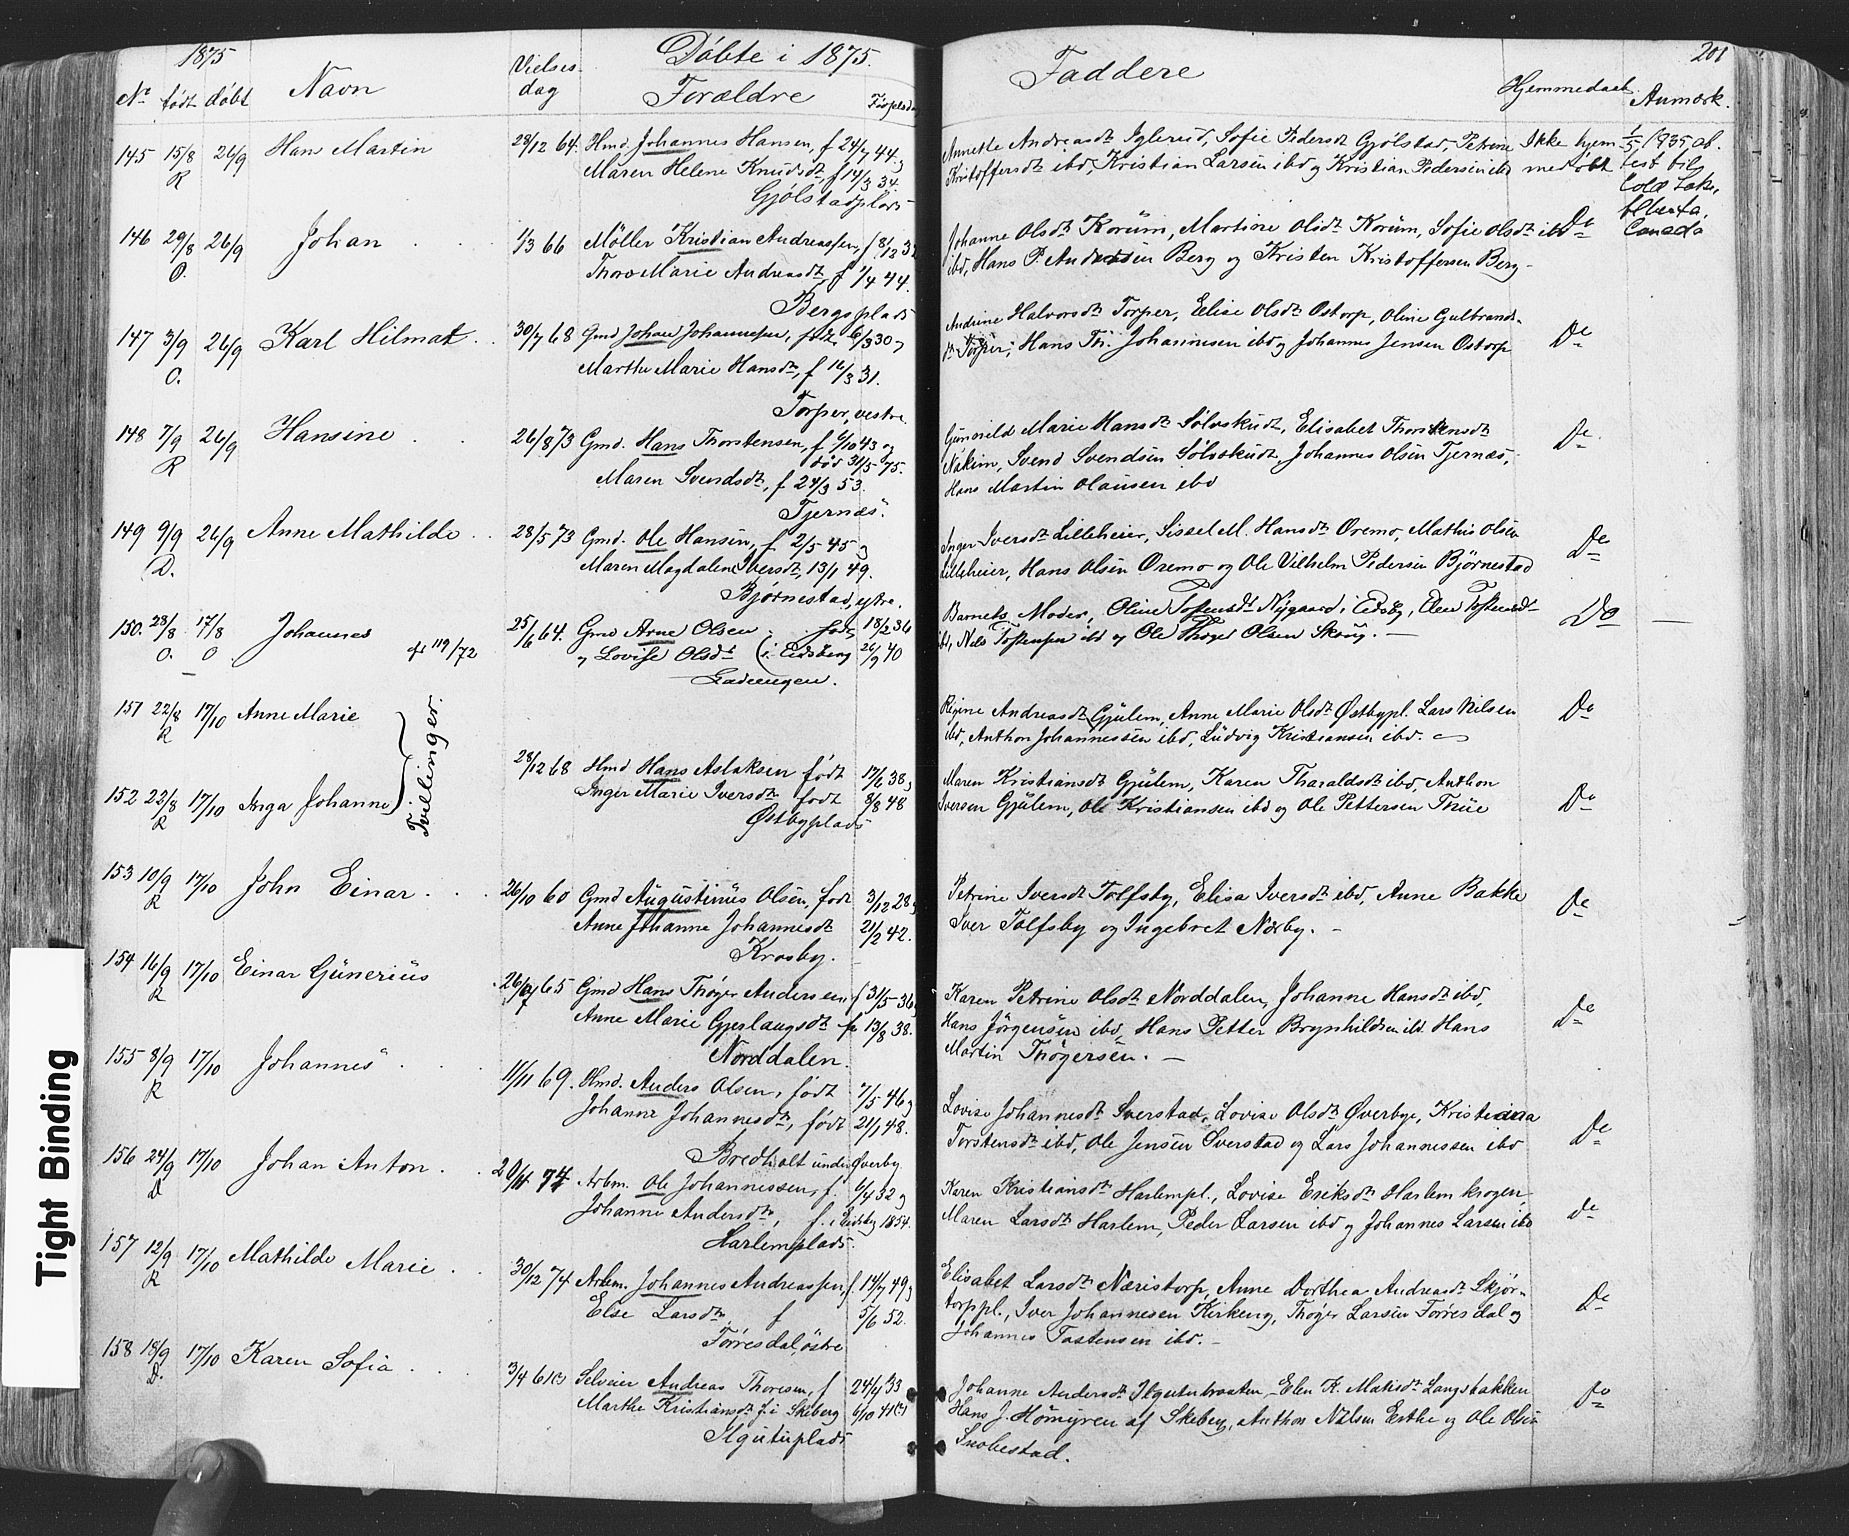 1875
Døbte i 1875.
201
No
født
døbt
Navn
Vielses-
dag
Forældre
Faddere
Hjemmedaab
Anmærk.
145 15/8 26/9 Hans Martin
R
23/12 64. Hmd. Johannes Hansen, f 24/7 44 og
Maren Helene Knudsdt, f 14/3 34.
Gjølstadplads
Annette Andreasdt Iglerud, Sofie Pedersdt Gjølstad, Petrine
Kristoffersdt ibd, Kristian Larsen ibd og Kristian Pedersen ibd
Ikke hjem-
medøbt
1/5 1935 at-
test til
Cold Lake,
Alberta,
Canada
146 29/8 26/9 Johan
O.
1/3 66 Møller Kristian Andreassen, f 8/12
Thora Marie Andreasdt, f 1/4 44.
Bergsplads
Johanne Olsdt Korum, Martine Olsdt Korum, Sofie Olsdt ibd
ibd, Hans P. Andersen Berg og Kristen Kristoffersen Berg
Do
147 3/9 26/9 Karl Hilmar
O.
30/7 68 Gmd Johan Johannesen, født 6/3 30 og
Marthe Marie Hansdt, f 12/3 31.
Torper, vestre
Andrine Halvorsdt Torper, Elise Olsdt Ostorp, Oline Gulbrands-
dt Torper, Hans Th. Johannesen ibd og Johannes Jensen Ostorp
Do
148 7/9 26/9 Hansine
R
26/8 73 Gmd. Hans Thorstensen, f 9/10 43 og
død 31/5 75.
Maren Svendsdt, f 24/3 53.
Tjernæs.
Gunvild Marie Hansdt Sølvskudt, Elisabet Thorstensdt
Nakim, Svend Svendsen Sølvskudt, Johannes Olsen Tjernæs,
Hans Martin Olausen ibd
Do
149 9/9 26/9 Anne Mathilde
D.
28/5 73 Gmd. Ole Hansen, f 2/5 45 og
Maren Magdalene Iversdt, 13/1 49.
Bjørnestad, østre.
Inger Iversdt Lilleheier, Sissel M. Hansdt Oremo, Mathis Olsen
Lilleheier, Hans Olsen Oremo og Ole Vilhelm Pedersen Bjørnestad
Do
150. 28/8 17/8 Johannes
O. O
119/72
25/6 64. Gmd Arne Olsen født 18/2 36
og Lovise Olsdt (i Eidsberg 26/9 40
Gadeengen.
Barnets Moder, Oline Tostensdt Nygaard i Eidsbg, Elen Tostensdt
ibd, Nils Tostensen ibd og Ole Thoger Olsen Skoug.
Do
151 22/8 17/10 Anne Marie
R
Tvellinger.
Regine Andreasdt Gjulem, Anne Marie Olsdt Østbypl. Lars Nilsen
ibd, Anthon Johannessen ibd, Ludvig Kristiansen ibd.
Do
152 22/8 17/10 Anga Johanne
R
28/12 68 Hmd Hans Aslaksen født 17/6 38 og
Inger Marie Iversdt født 3/8 48
Østbyplads
Maren Kristiansdt Gjulem, Karen Tharaldsdt ibd, Anthon
Iversen Gjulem, Ole Kristiansen ibd og Ole Pettersen Thue
Do
153 10/9 17/10 John Einar
R
26/10 60 Gmd Augustinus Olsen, født 3/12 28 og
Anne Johanne Johannesdt 21/2 42.
Krosby.
Petrine Iversdt Tolfsby, Elisa Iversdt ibd, Anne Bakke
Iver Tolfsby og Ingebret Nærby.
Do
154 16/9 17/10 Einar Gunerius
R
26/7 65 Gmd Hans Thøger Andersen f 31/5 36 og
Anne Marie Gjerlaugsdt f 13/8 38.
Norddalen.
Karen Petrine Olsdt Norddalen, Johanne Hansdt ibd,
Hans Jørgensen ibd, Hans Petter Brynhildsen ibd Hans
Martin Thøgersen.
Do
155 8/9 17/10 Johannes
R
11/11 69. Hmd. Anders Olsen, født 7/5 46 og
Johanne Johannesdt, født 21/1 48.
Bredholt under Øverby
Lovise Johannesdt Sverstad, Lovise Olsdt Øverbye, Kristiana
Torstensdt ibd, Ole Jensen Sverstad og Lars Johannessen ibd
Do
156 24/9 17/10 Johan Anton
D
20/11 74 Arbm. Ole Johannessen, f. 6/4 32 og
Johanne Andersdt, f. i Eidsbg 1854.
Harlemplads.
Karen Kristiansdt Harlempl., Lovise Eriksdt Harlem krogen
Maren Larsdt Harlem, Peder Larsen ibd og Johannes Larsen ibd
Do
157 12/9 17/10 Mathilde Marie
R
30/12 74 Arbm. Johannes Andreassen, f. 14/7 49 og
Else Larsdt f 5/6 52.
Torresdal, østre
Elisabet Larsdt Næristorp, Anne Dorthea Andreasdt Skjør-
torppl., Iver Johannesen Kirkeng, Thøger Larsen Torresdal og
Johannes Tostensen ibd.
Do
158 18/9 17/10 Karen Sofia
D.
3/4 61 Selveier Andreas Thoresen, f 24/4 33
Marthe Kristiansdt f. i Skeberg 6/10 41
Johanne Andersdt Elen K. Matisdt Langsbakken
Hans J. Homyren af Skeberg, Anthon Nilsen Erthe og Ole Olsen
Snobestad.
Do
Tight Binding